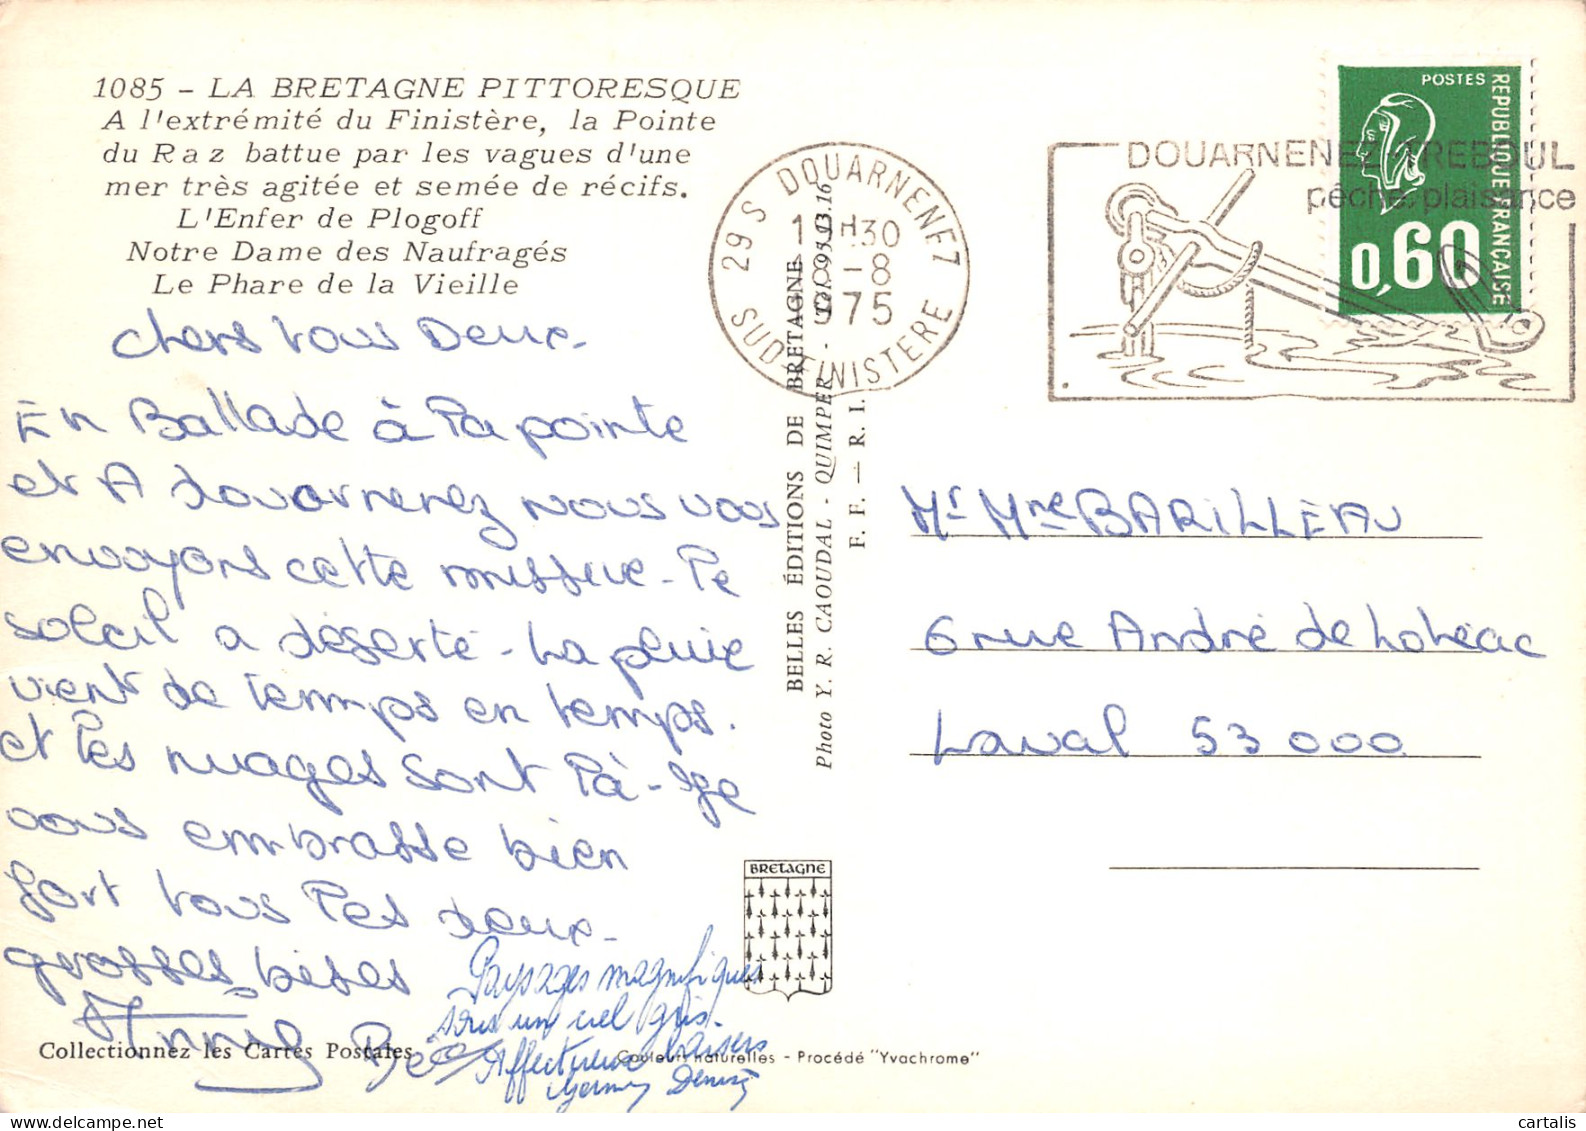 1085 - LA BRETAGNE PITTORESQUE
A l'extrémité du Finistère, la Pointe
du Raz battue par les vagues d'une
mer très agitée et semée de récifs.
L'Enfer de Plogoff
Notre Dame des Naufragés
Le Phare de la Vieille
chers vous Deux.
En Ballade à la pointe
et A douarnenez nous vous
envoyons cette missive - le
soleil a déserté - La pluie
vient de temps en temps.
et les nuages sont là - Je
vous embrasse bien
fort tous les deux -
grosses bises
Anny
Paysages magnifiques
sous un ciel gris.
Affectueux baisers
Denise
Collectionnez les Cartes Postales
Couleurs naturelles - Procédé "Yvachrome"
BRETAGNE
BELLES ÉDITIONS DE BRETAGNE
Photo Y. R. CAOUDAL - QUIMPER - Tél. 95.13.16
F. F. — R. I.
29 S DOUARNENEZ
30
8 - 8
1975
SUD-FINISTERE
DOUARNENEZ-TREBOUL
pêche plaisance
POSTES
REPUBLIQUE FRANÇAISE
0,60
Mr Mme BARILLEAU
6 rue André de Lohéac
Laval 53 000
cartalis